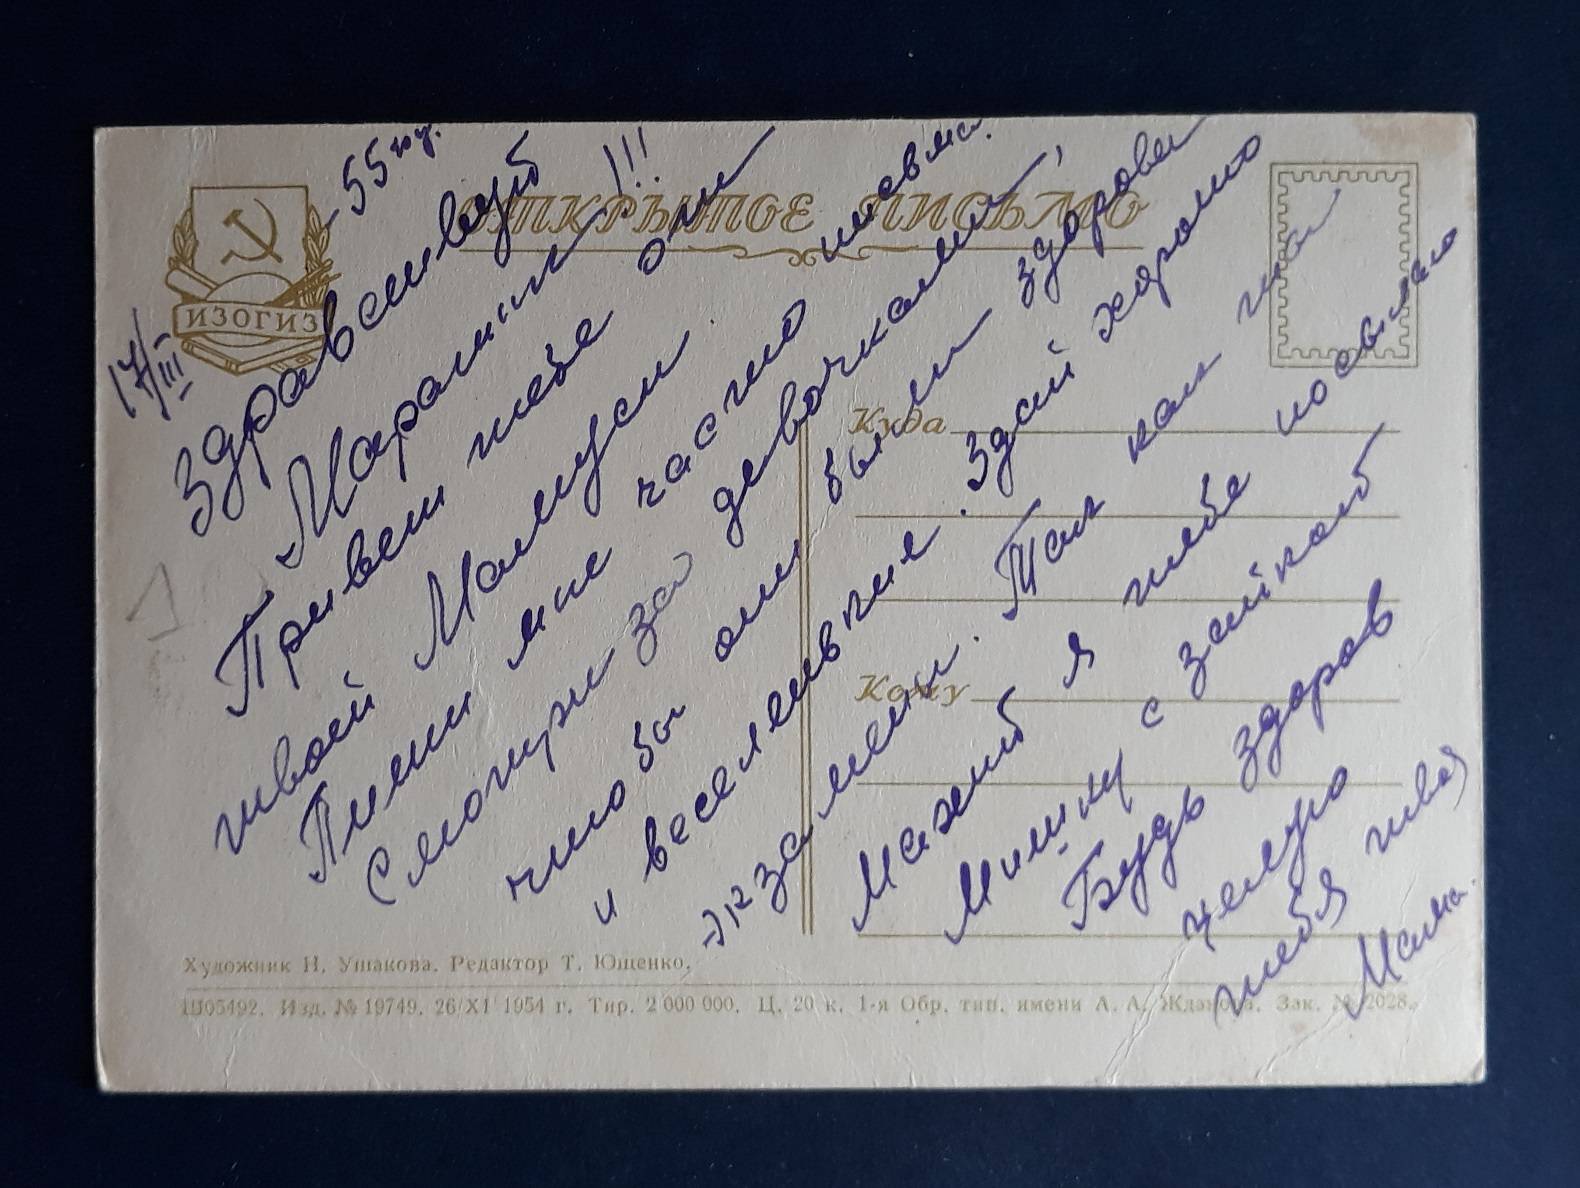 17/III – 55 году.
Здравствуй
Маратик!!!
Привет тебе от
твоей Мамуси.
Пиши мне часто письма.
Смотри за девочками,
чтобы они были здоровы
и веселенькие. Здай хорошо
экзамены. Так как та
Мажит я тебе посылаю
Мишку с зайкой
Будь здоров
целую
тебя твоя
Мама.
ИЗОГИЗ
ОТКРЫТОЕ ПИСЬМО
Куда
Кому
Художник Н. Ушакова. Редактор Т. Ющенко.
Ш05492. Изд. № 19749. 26/XI 1954 г. Тир. 2 000 000. Ц. 20 к. 1-я Обр. тип. имени А. А. Жданова. Зак. № 2028.